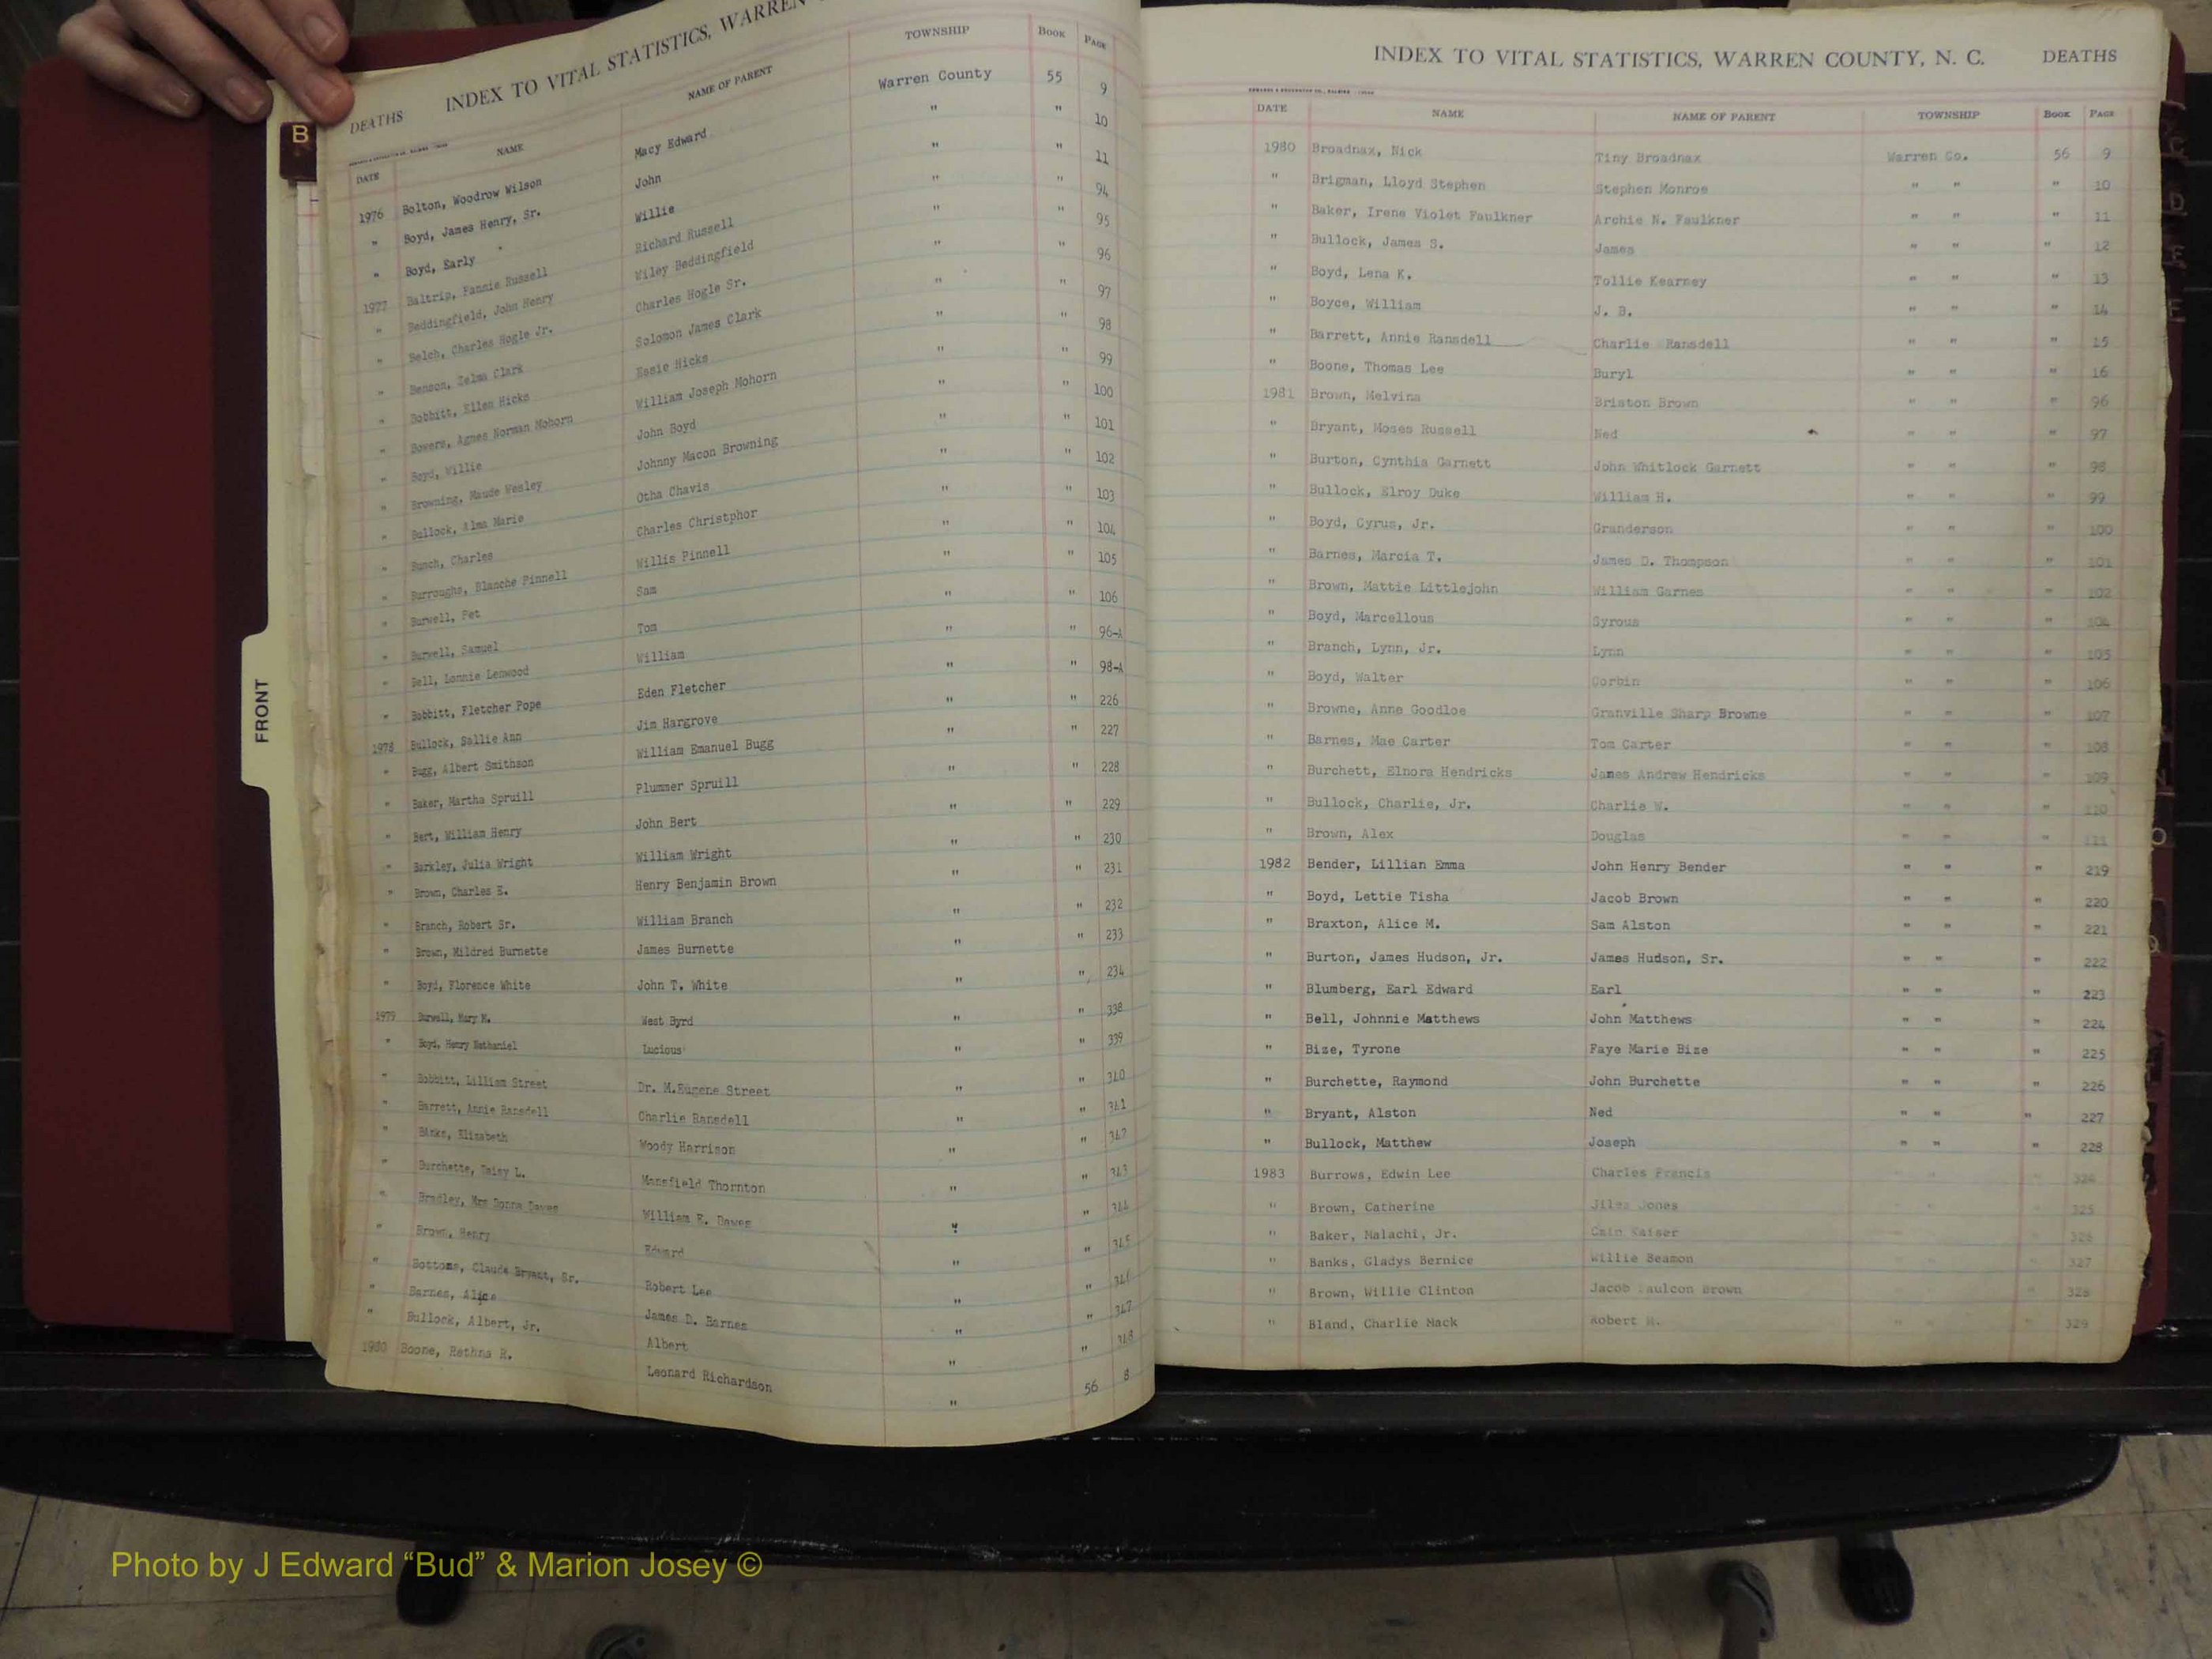 DEATHS INDEX TO VITAL STATISTICS, WARREN
DATE NAME NAME OF PARENT TOWNSHIP BOOK PAGE
1976 Bolton, Woodrow Wilson Macy Edward Warren County 55 9
" Boyd, James Henry, Sr. John " " 10
" Boyd, Early Willie " " 11
1977 Baltrip, Fannie Russell Richard Russell " " 94
" Beddingfield, John Henry Wiley Beddingfield " " 95
" Belch, Charles Hogle Jr. Charles Hogle Sr. " " 96
" Benson, Zelma Clark Solomon James Clark " " 97
" Bobbitt, Ellen Hicks Essie Hicks " " 98
" Bowers, Agnes Norman Mohorn William Joseph Mohorn " " 99
" Boyd, Willie John Boyd " " 100
" Browning, Maude Wesley Johnny Macon Browning " " 101
" Bullock, Alma Marie Otha Chavis " " 102
" Bunch, Charles Charles Christphor " " 103
" Burroughs, Blanche Pinnell Willis Pinnell " " 104
" Burwell, Pet Sam " " 105
" Burwell, Samuel Tom " " 106
" Bell, Lonnie Lenwood William " " 96-A
" Bobbitt, Fletcher Pope Eden Fletcher " " 98-A
1978 Bullock, Sallie Ann Jim Hargrove " " 226
" Bugg, Albert Smithson William Emanuel Bugg " " 227
" Baker, Martha Spruill Plummer Spruill " " 228
" Bert, William Henry John Bert " " 229
" Barkley, Julia Wright William Wright " " 230
" Brown, Charles E. Henry Benjamin Brown " " 231
" Branch, Robert Sr. William Branch " " 232
" Brown, Mildred Burnette James Burnette " " 233
" Boyd, Florence White John T. White " " 234
1979 Burwell, Mary M. West Byrd " " 338
" Boyd, Henry Nathaniel Lucious " " 339
" Bobbitt, Lilliam Street Dr. M.Eugene Street " " 340
" Barrett, Annie Ransdell Charlie Ransdell " " 341
" Banks, Elizabeth Woody Harrison " " 342
" Burchette, Daisy L. Mansfield Thornton " " 343
" Bradley, Mrs Donna Dawes William E. Dawes " " 344
" Brown, Henry Edward " " 345
" Bottoms, Claude Bryant, Sr. Robert Lee " " 346
" Barnes, Alice James D. Barnes " " 347
" Bullock, Albert, Jr. Albert " " 348
1980 Boone, Rethna R. Leonard Richardson " 56 8
INDEX TO VITAL STATISTICS, WARREN COUNTY, N. C. DEATHS
DATE NAME NAME OF PARENT TOWNSHIP BOOK PAGE
1980 Broadnax, Nick Tiny Broadnax Warren Co. 56 9
" Brigman, Lloyd Stephen Stephen Monroe " " " 10
" Baker, Irene Violet Faulkner Archie N. Faulkner " " " 11
" Bullock, James S. James " " " 12
" Boyd, Lena K. Tollie Kearney " " " 13
" Boyce, William J. B. " " " 14
" Barrett, Annie Ransdell Charlie Ransdell " " " 15
" Boone, Thomas Lee Buryl " " " 16
1981 Brown, Melvina Briston Brown " " " 96
" Bryant, Moses Russell Ned " " " 97
" Burton, Cynthia Garnett John Whitlock Garnett " " " 98
" Bullock, Elroy Duke William H. " " " 99
" Boyd, Cyrus, Jr. Granderson " " " 100
" Barnes, Marcia T. James D. Thompson " " " 101
" Brown, Mattie Littlejohn William Garnes " " " 102
" Boyd, Marcellous Syrous " " " 104
" Branch, Lynn, Jr. Lynn " " " 105
" Boyd, Walter Corbin " " " 106
" Browne, Anne Goodloe Granville Sharp Browne " " " 107
" Barnes, Mae Carter Tom Carter " " " 108
" Burchett, Elnora Hendricks James Andrew Hendricks " " " 109
" Bullock, Charlie, Jr. Charlie W. " " " 110
" Brown, Alex Douglas " " " 111
1982 Bender, Lillian Emma John Henry Bender " " " 219
" Boyd, Lettie Tisha Jacob Brown " " " 220
" Braxton, Alice M. Sam Alston " " " 221
" Burton, James Hudson, Jr. James Hudson, Sr. " " " 222
" Blumberg, Earl Edward Earl " " " 223
" Bell, Johnnie Matthews John Matthews " " " 224
" Bize, Tyrone Faye Marie Bize " " " 225
" Burchette, Raymond John Burchette " " " 226
" Bryant, Alston Ned " " " 227
" Bullock, Matthew Joseph " " " 228
1983 Burrows, Edwin Lee Charles Francis " " " 324
" Brown, Catherine Jiles Jones " " 325
" Baker, Malachi, Jr. Cain Kaiser 326
" Banks, Gladys Bernice Willie Seamon 327
" Brown, Willie Clinton Jacob aulcon Brown " 328
" Bland, Charlie Mack Robert H. " " " 329
B
FRONT
Photo by J Edward “Bud” & Marion Josey ©